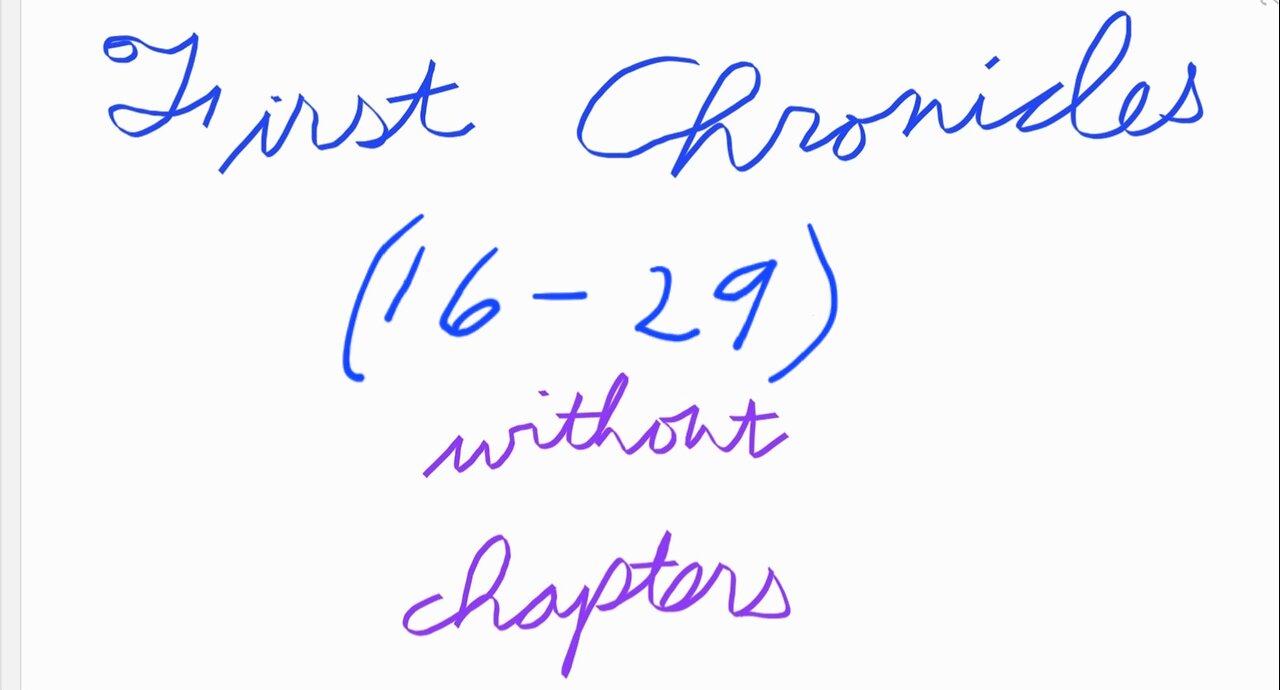 First Chronicles
(16-29)
without
chapters